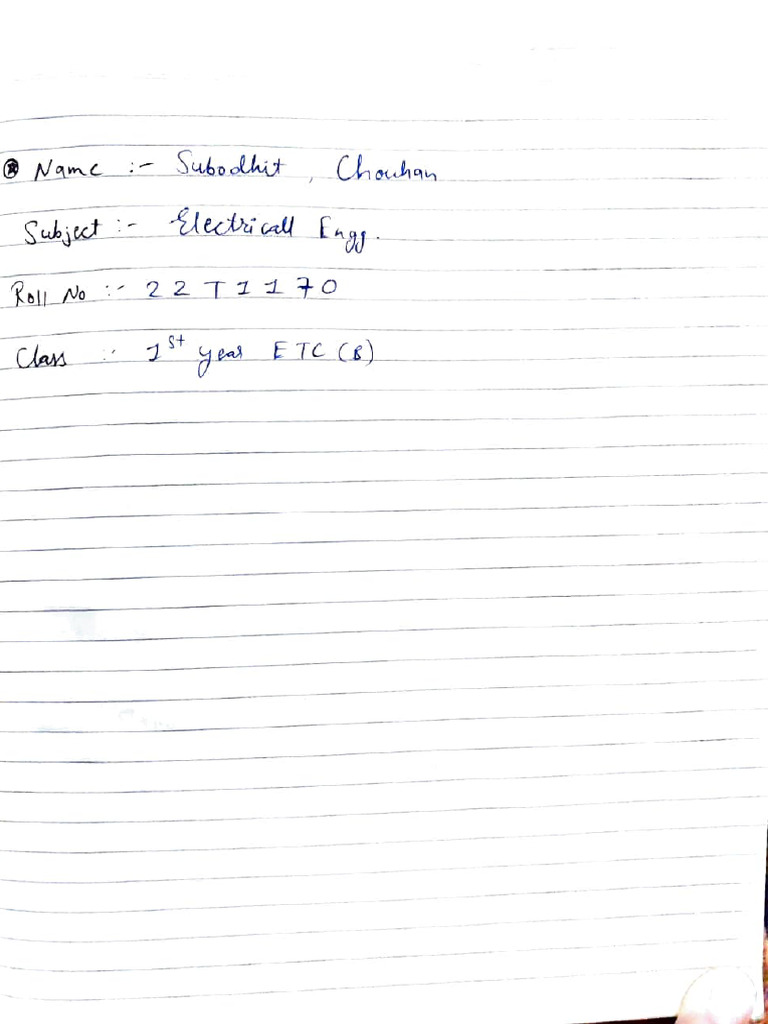 Name :- Subodhit , Chouhan
Subject :- Electricall Engg.
Roll No :- 22T1170
Class :- 1st year ETC (B)